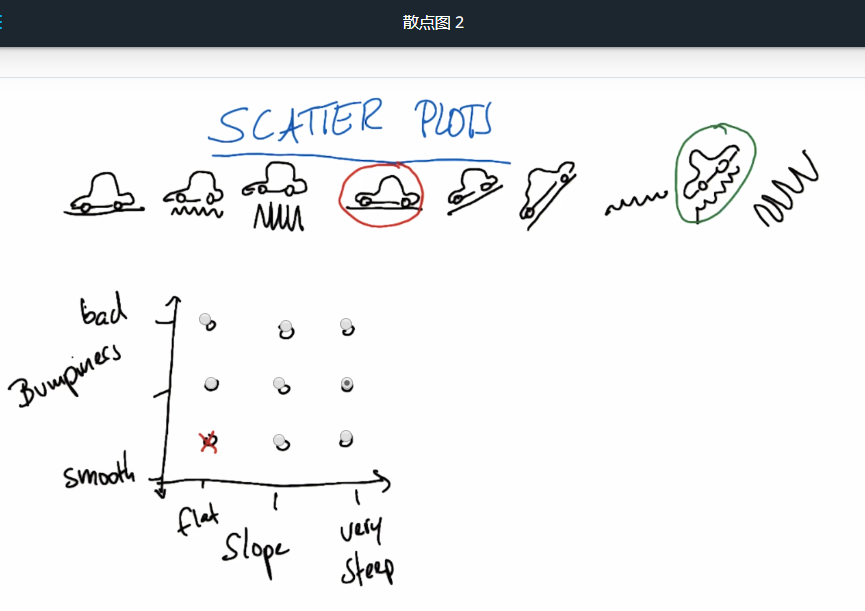 散点图 2
SCATTER PLOTS
bad
Bumpiness
smooth
flat
Slope
very
steep